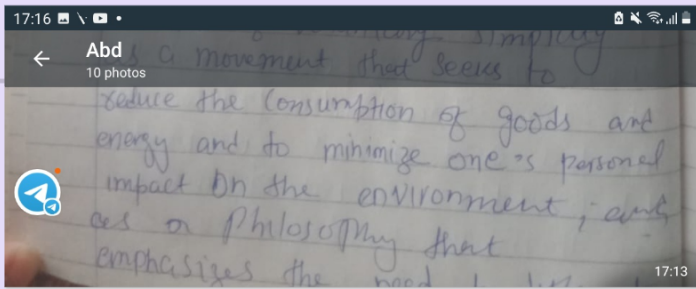 17:16
Abd
10 photos
simplicity
as a movement that seeks to
reduce the Consumption of goods and
energy and to minimize one's personal
impact on the environment; and
as a Philosophy that
emphasizes the need
17:13